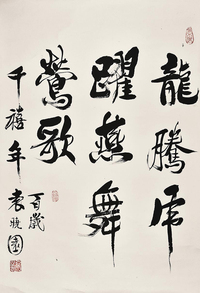 龍騰虎
躍燕舞
鶯歌
千禧年
百歲
袁晓園